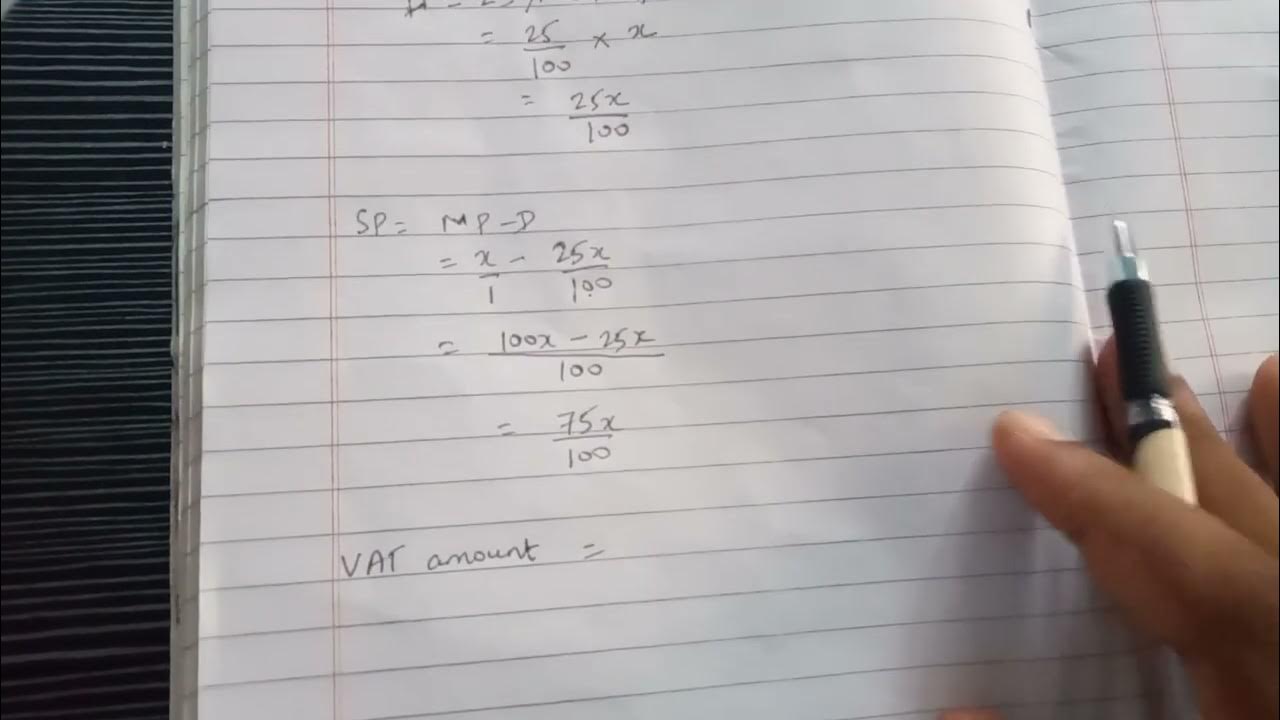 = 25/100 × x
= 25x/100
SP = MP - D
= x/1 - 25x/100
= 100x - 25x/100
= 75x/100
VAT amount =